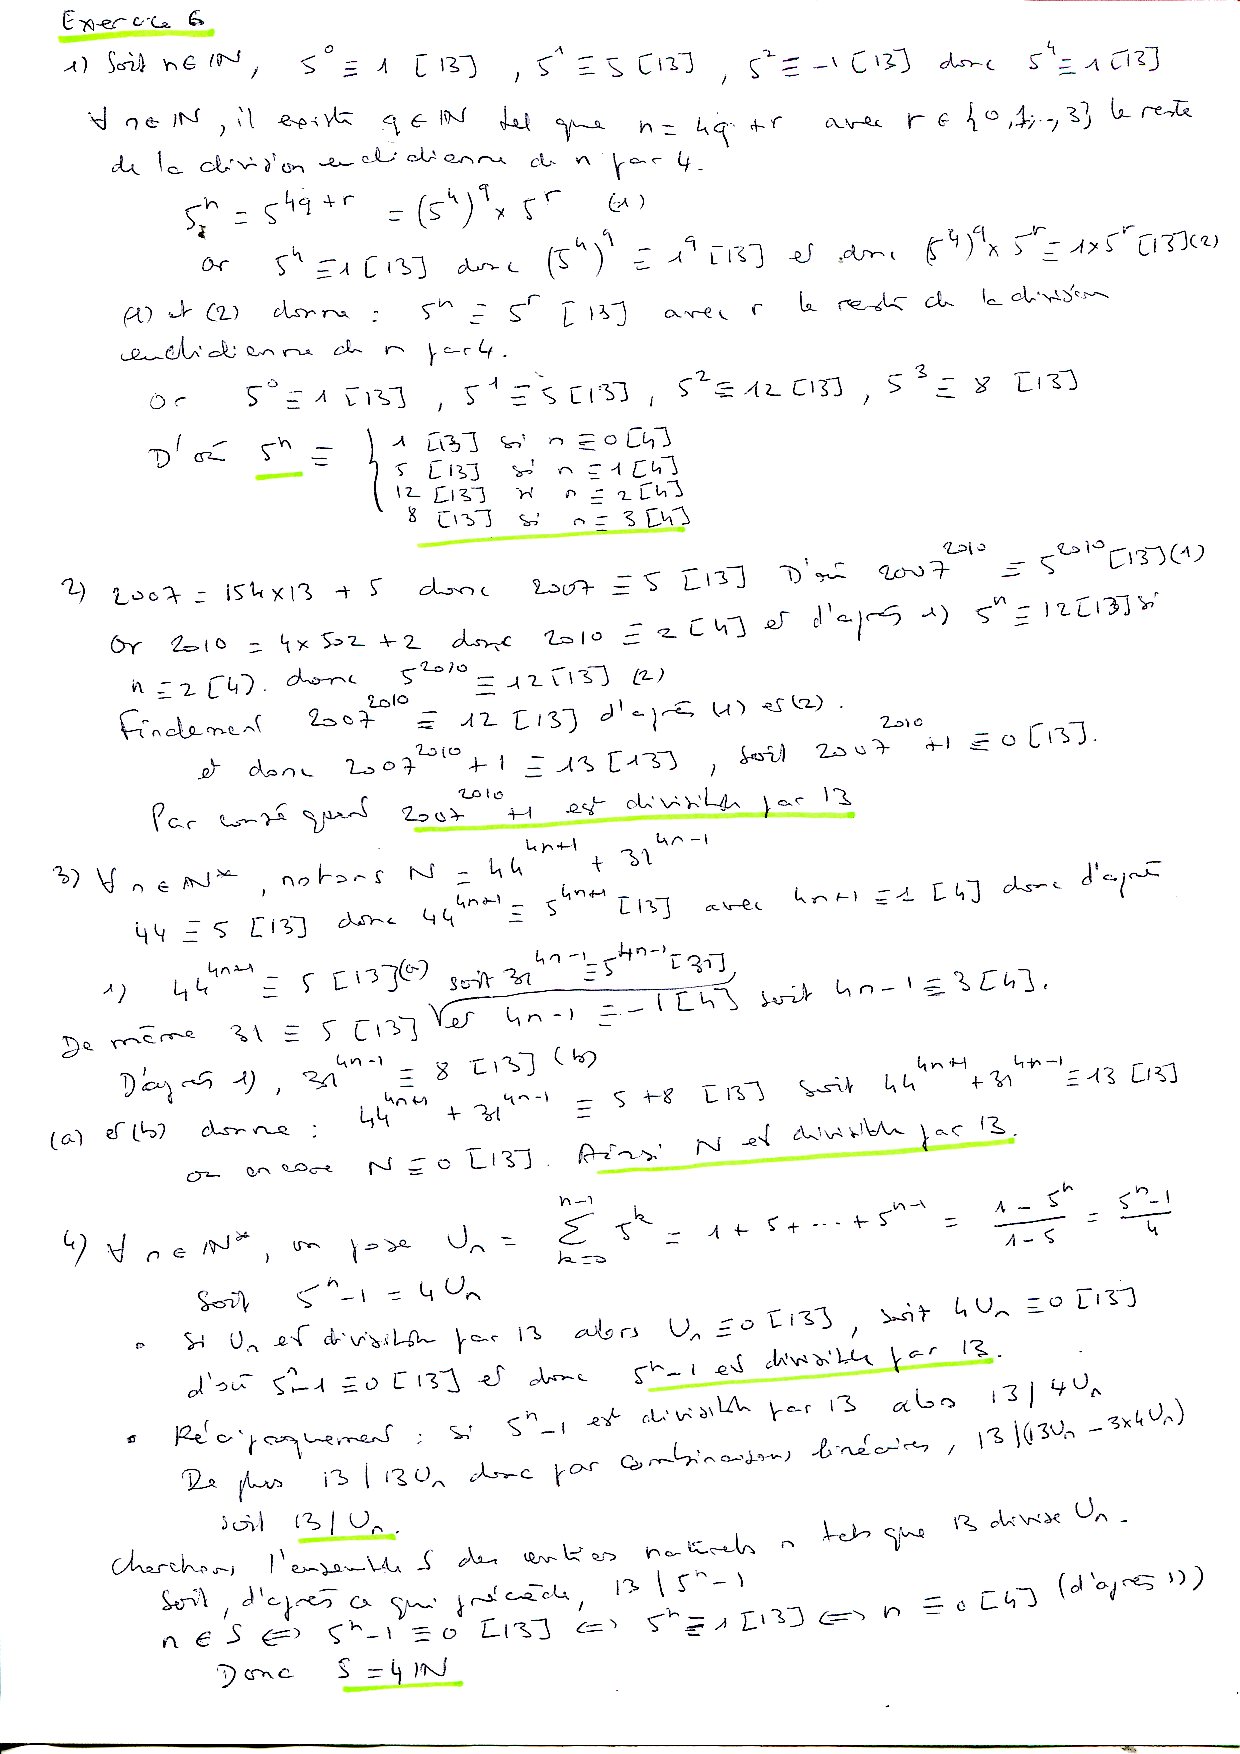 Exercice 6
1) Soit n ∈ IN, 5^0 ≡ 1 [13], 5^1 ≡ 5 [13], 5^2 ≡ -1 [13] donc 5^4 ≡ 1 [13]
∀ n ∈ IN, il existe q ∈ IN tel que n = 4q + r avec r ∈ {0, 1, .., 3} le reste
de la division euclidienne de n par 4.
5^n = 5^{4q+r} = (5^4)^q × 5^r (1)
or 5^4 ≡ 1 [13] donc (5^4)^q ≡ 1^q [13] et donc (5^4)^q × 5^r ≡ 1 × 5^r [13] (2)
(1) et (2) donne : 5^n ≡ 5^r [13] avec r le reste de la division
euclidienne de n par 4.
Or 5^0 ≡ 1 [13], 5^1 ≡ 5 [13], 5^2 ≡ 12 [13], 5^3 ≡ 8 [13]
D'où 5^n ≡ { 1 [13] si n ≡ 0 [4]
5 [13] si n ≡ 1 [4]
12 [13] si n ≡ 2 [4]
8 [13] si n ≡ 3 [4]
2) 2007 = 154×13 + 5 donc 2007 ≡ 5 [13] D'où 2007^{2010} ≡ 5^{2010} [13] (1)
Or 2010 = 4×502 + 2 donc 2010 ≡ 2 [4] et d'après 1) 5^n ≡ 12 [13] si
n ≡ 2 [4). donc 5^{2010} ≡ 12 [13] (2)
Finalement 2007^{2010} ≡ 12 [13] d'après (1) et (2).
et donc 2007^{2010} + 1 ≡ 13 [13], soit 2007^{2010} + 1 ≡ 0 [13].
Par conséquent 2007^{2010} + 1 est divisible par 13
3) ∀ n ∈ IN*, notons N = 44^{4n+1} + 31^{4n-1}
44 ≡ 5 [13] donc 44^{4n+1} ≡ 5^{4n+1} [13] avec 4n+1 ≡ 1 [4] donc d'après
1) 44^{4n+1} ≡ 5 [13] (a) soit 31^{4n-1} ≡ 5^{4n-1} [31]
De même 31 ≡ 5 [13] et 4n-1 ≡ -1 [4] soit 4n-1 ≡ 3 [4].
D'après 1), 31^{4n-1} ≡ 8 [13] (b)
(a) et (b) donne : 44^{4n+1} + 31^{4n-1} ≡ 5 + 8 [13] soit 44^{4n+1} + 31^{4n-1} ≡ 13 [13]
ou encore N ≡ 0 [13]. Ainsi N est divisible par 13.
4) ∀ n ∈ IN*, on pose U_n = ∑_{k=0}^{n-1} 5^k = 1 + 5 + ... + 5^{n-1} = (1 - 5^n)/(1 - 5) = (5^n - 1)/4
Soit 5^n - 1 = 4U_n
• Si U_n est divisible par 13 alors U_n ≡ 0 [13], soit 4U_n ≡ 0 [13]
d'où 5^n - 1 ≡ 0 [13] et donc 5^n - 1 est divisible par 13.
• Réciproquement : si 5^n - 1 est divisible par 13 alors 13 | 4U_n
De plus 13 | 13U_n donc par combinaisons linéaires, 13 | (13U_n - 3×4U_n)
soit 13 | U_n.
Cherchons l'ensemble S des entiers naturels n tels que 13 divise U_n.
Soit, d'après ce qui précède, 13 | 5^n - 1
n ∈ S ⟺ 5^n - 1 ≡ 0 [13] ⟺ 5^n ≡ 1 [13] ⟺ n ≡ 0 [4] (d'après 1))
Donc S = 4 IN